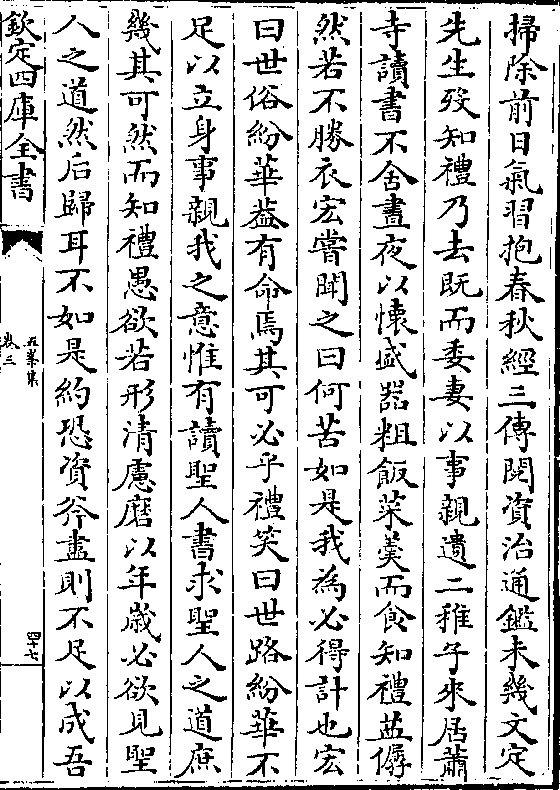 掃除前日氣習抱春秋經三傳閱資治通鑑未幾文定
先生歿知禮乃去既而委妻以事親遺二稚子來居蕭
寺讀書不舍晝夜以懐盛器粗飯菜羮而食知禮益僝
然若不勝衣宏嘗聞之曰何苦如是我為必得計也宏
曰世俗紛華益有命焉其可必乎禮笑曰世路紛華不
足以立身事親我之意惟有讀聖人書求聖人之道庶
幾其可然而知禮愚欲若形清慮磨以年歲必欲見聖
人之道然后歸耳不如是約恐資斧盡則不足以成吾
欽定四庫全書
五峯集
卷三
四十七